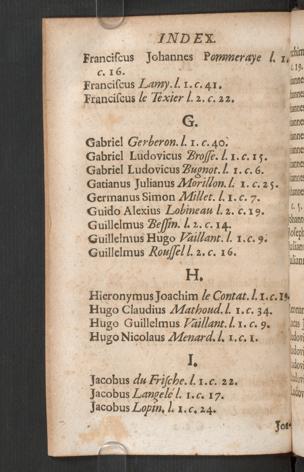 INDEX.
Franciscus Johannes Pommeraye l. 1.
c. 16.
Franciscus Lamy. l. 1. c. 41.
Franciscus le Texier l. 2. c. 22.
G.
Gabriel Gerberon. l. 1. c. 40.
Gabriel Ludovicus Brosse. l. 1. c. 15.
Gabriel Ludovicus Bugnot. l. 1. c. 6.
Gatianus Julianus Morillon. l. 1. c. 25.
Germanus Simon Millet. l. 1. c. 7.
Guido Alexius Lobineau l. 2. c. 19.
Guillelmus Bessin. l. 2. c. 14.
Guillelmus Hugo Vaillant. l. 1. c. 9.
Guillelmus Roussel l. 2. c. 16.
H.
Hieronymus Joachim le Contat. l. 1. c.
Hugo Claudius Mathoud. l. 1. c. 34.
Hugo Guillelmus Vaillant. l. 1. c. 9.
Hugo Nicolaus Menard. l. 1. c. 1.
I.
Jacobus du Frische. l. 1. c. 22.
Jacobus Langelé l. 1. c. 17.
Jacobus Lopin. l. 1. c. 24.